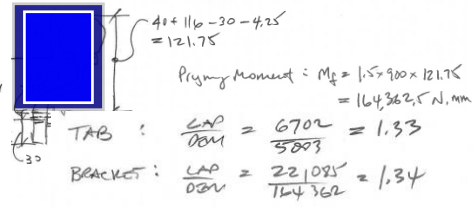 40 + 116 - 30 - 4.25
= 121.75
Prying Moment : Mf = 1.5 x 900 x 121.75
= 164,362.5 N.mm
TAB : CAP/DEM = 6702/5003 = 1.33
30
BRACKET : CAP/DEM = 221085/164362 = 1.34